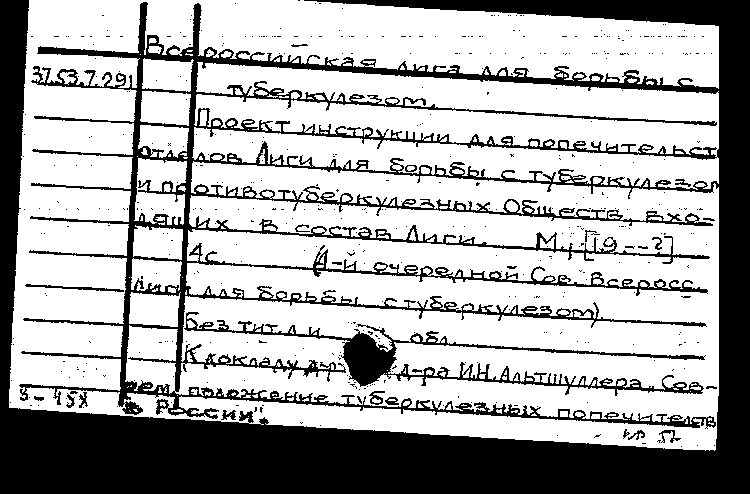 Всероссийская лига для борьбы с
37.53.7.291
туберкулезом.
Проект инструкции для попечительст
отделов Лиги для борьбы с туберкулезом
и противотуберкулезных Обществ, вхо-
дящих в состав Лиги. М., [19--?]
4с. (1-й очередной Сов. Всеросс.
Лиги для борьбы с туберкулезом).
Без тит. л и обл.
(К докладу д-ра И.Н. Альтшуллера „Сов-
рем. положение туберкулезных попечительств
в России".